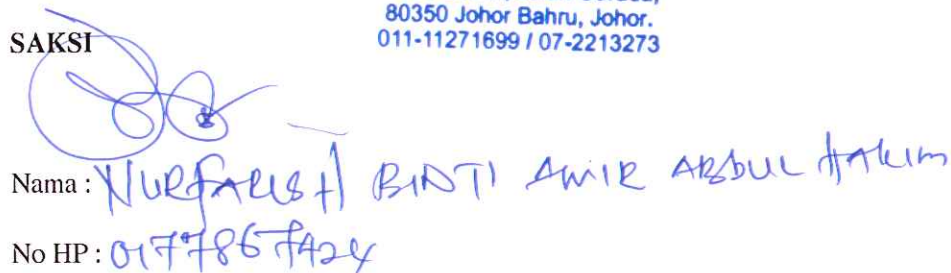 80350 Johor Bahru, Johor.
011-11271699 / 07-2213273
SAKSI
Nama : NURFARISHA BINTI AMIR ABDUL HAKIM
No HP : 0177867424